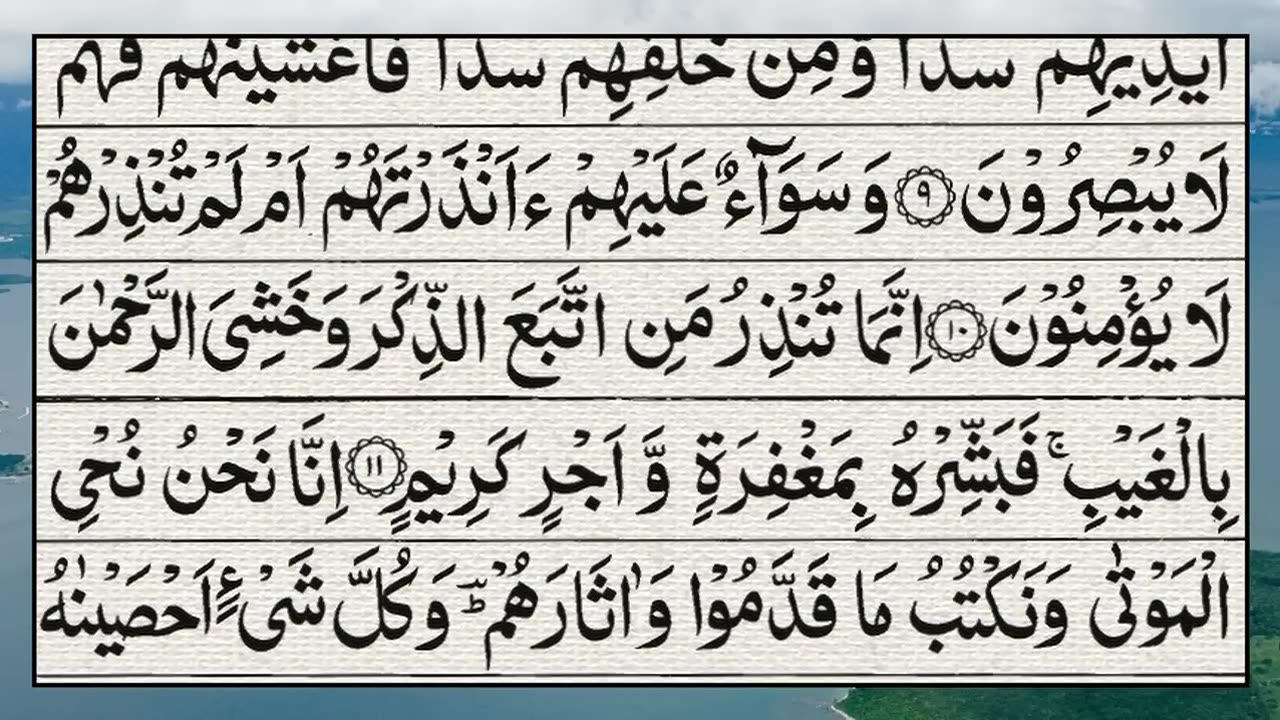 اَيْدِيْهِمْ سَدًّا وَّمِنْ خَلْفِهِمْ سَدًّا فَاَغْشَيْنٰهُمْ فَهُمْ
لَا يُبْصِرُوْنَ ۹ وَ سَوَآءٌ عَلَيْهِمْ ءَاَنْذَرْتَهُمْ اَمْ لَمْ تُنْذِرْهُمْ
لَا يُؤْمِنُوْنَ ۱۰ اِنَّمَا تُنْذِرُ مَنِ اتَّبَعَ الذِّكْرَ وَ خَشِیَ الرَّحْمٰنَ
بِالْغَيْبِ ۚ فَبَشِّرْهُ بِمَغْفِرَةٍ وَّ اَجْرٍ كَرِيْمٍ ۱۱ اِنَّا نَحْنُ نُحْیِ
الْمَوْتٰی وَ نَكْتُبُ مَا قَدَّمُوْا وَ اٰثَارَهُمْ ؕ وَ كُلَّ شَیْءٍ اَحْصَيْنٰهُ